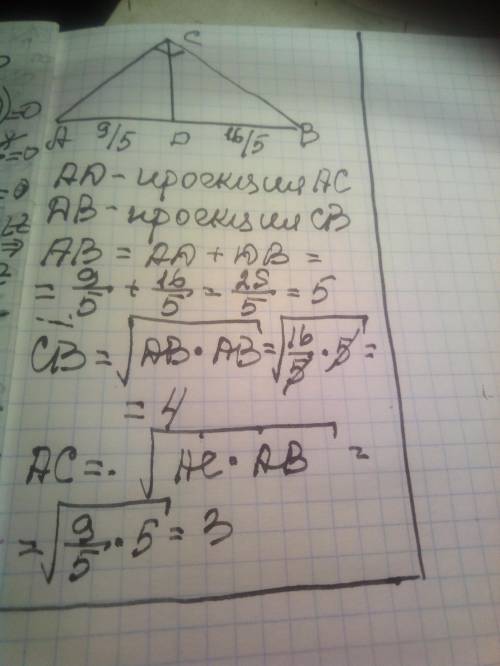 C
A 9/5 D 16/5 B
AD - проекция AC
DB - проекция CB
AB = AD + DB =
= 9/5 + 16/5 = 25/5 = 5
CB = √(AB · AB) = √(16/5 · 5) =
= 4
AC = · √(AC · AB) =
= √(9/5 · 5) = 3